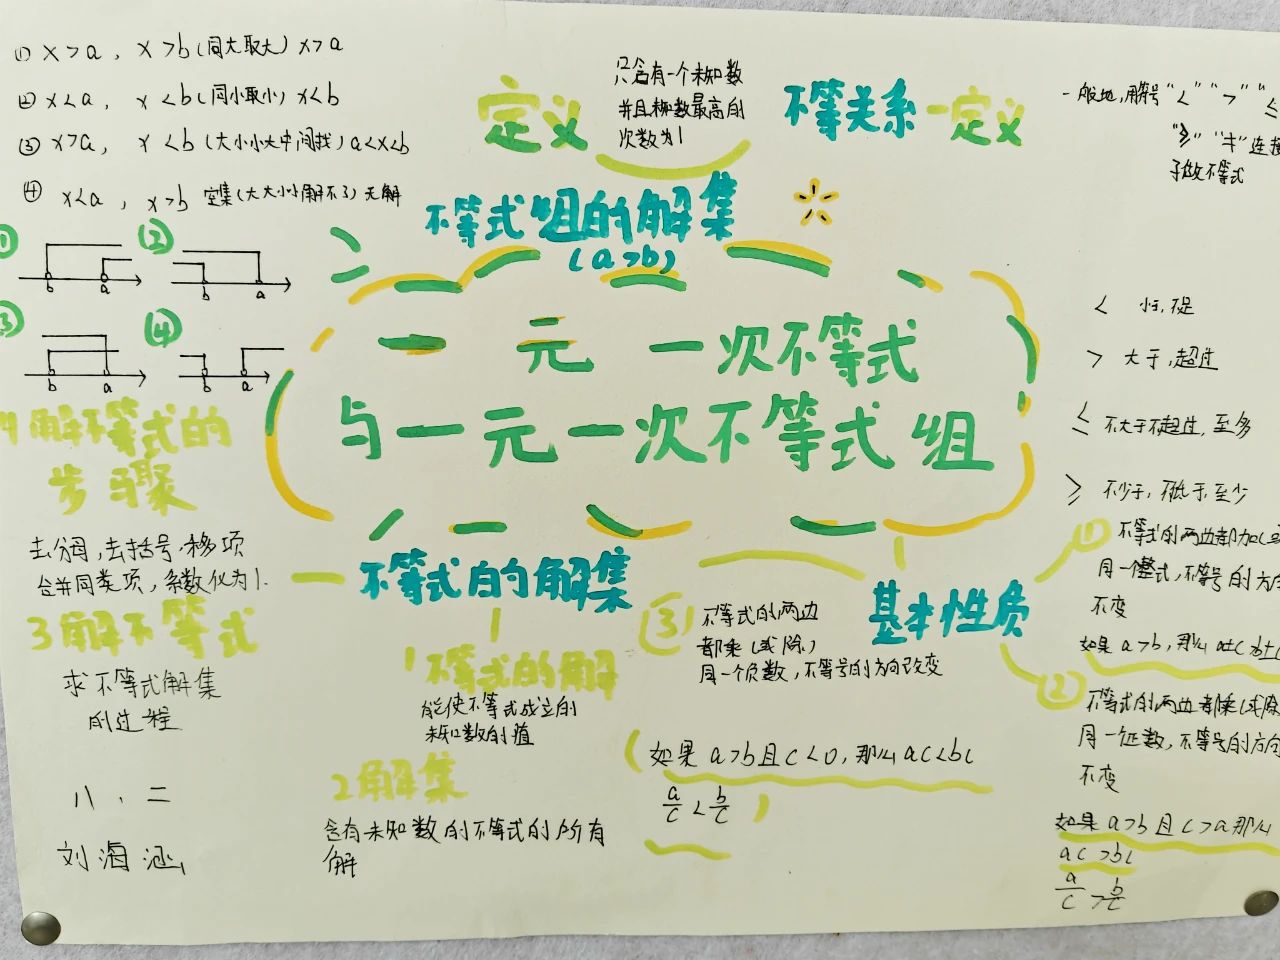 ① x>a，x>b(同大取大) x>a
② x<a，x<b(同小取小) x<b
③ x>a，x<b(大小小大中间找) a<x<b
④ x<a，x>b 空集(大大小小解不了) 无解
① ②
b a b a
③ ④
b a b a
定义
只含有一个未知数
并且未知数最高的
次数为1
不等关系 一定义
一般地,用符号"<" ">" "≤
"≥" "≠"连接
子做不等式
不等式组的解集
(a>b)
一元一次不等式
与一元一次不等式组
< 小于,不足
> 大于,超过
≤ 不大于不超过,至多
≥ 不少于,不低于,至少
4解不等式的
步骤
去分母,去括号,移项
合并同类项,系数化为1.
3解不等式
求不等式解集
的过程
八、二
刘海涵
不等式的解集
1不等式的解
能使不等式成立的
未知数的值
2解集
含有未知数的不等式的所有
解
基本性质
① 不等式的两边都加(或
同一个整式,不等号的方向
不变
如果a>b,那么a±c>b±c
② 不等式的两边都乘(或除
同一个正数,不等号的方向
不变
如果a>b且c>a那么
ac>bc
a/c > b/c
③ 不等式的两边
都乘(或除)
同一个负数,不等号的方向改变
(如果a>b且c<0,那么ac<bc
a/c < b/c )